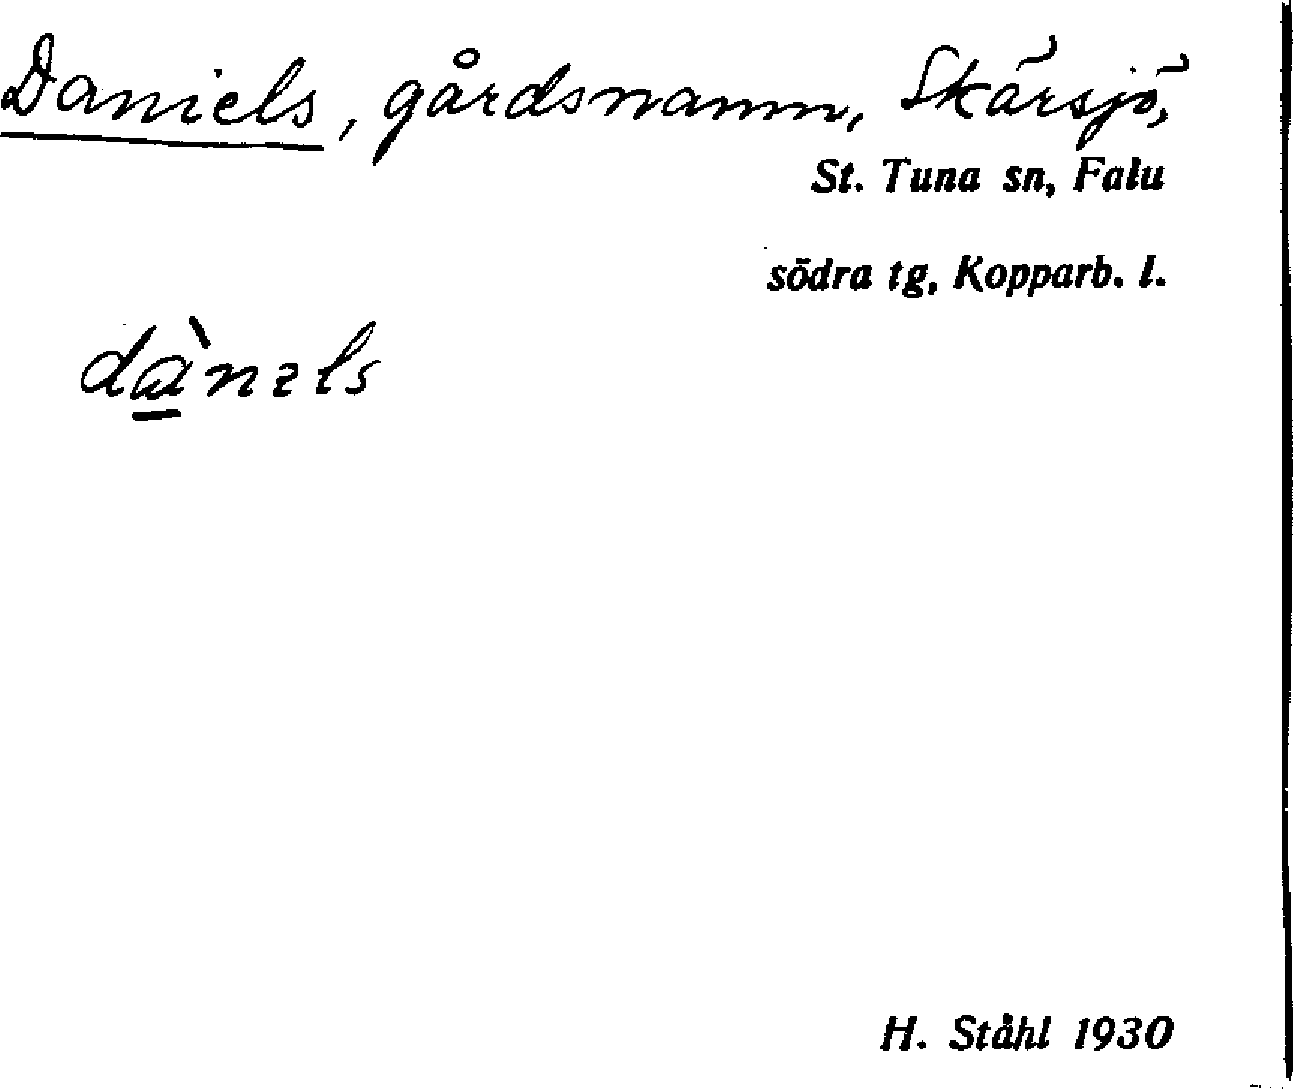 Daniels, gårdsnamn, Skärsjö,
St. Tuna sn, Falu
södra tg, Kopparb. l.
H. Ståhl 1930